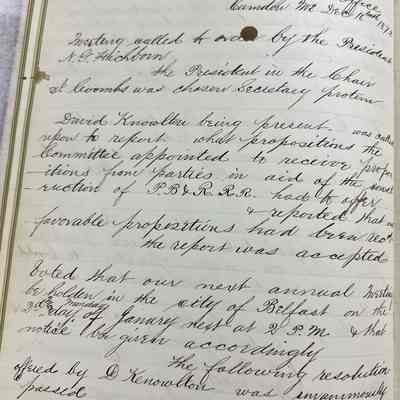 Office
Camden Me Dec 18
Meeting called to order by the President
N. G. Hichborn
The President in the Chair
Coombs was chosen Secretary protem
David Knowlton being present was called
upon to report what propositions the
Committee appointed to receive propos
itions from parties in aid of the const
ruction of P.B & R.R.R. had to offer
& reported that no
favorable propositions had been rec'd
the report was accepted
Voted that our next annual Meeting
be holden in the city of Belfast on the
3d Monday day of January next at 2 P.M. & that
notice be given accordingly
The following resolution
offered by D Knowlton was unanimously
passed